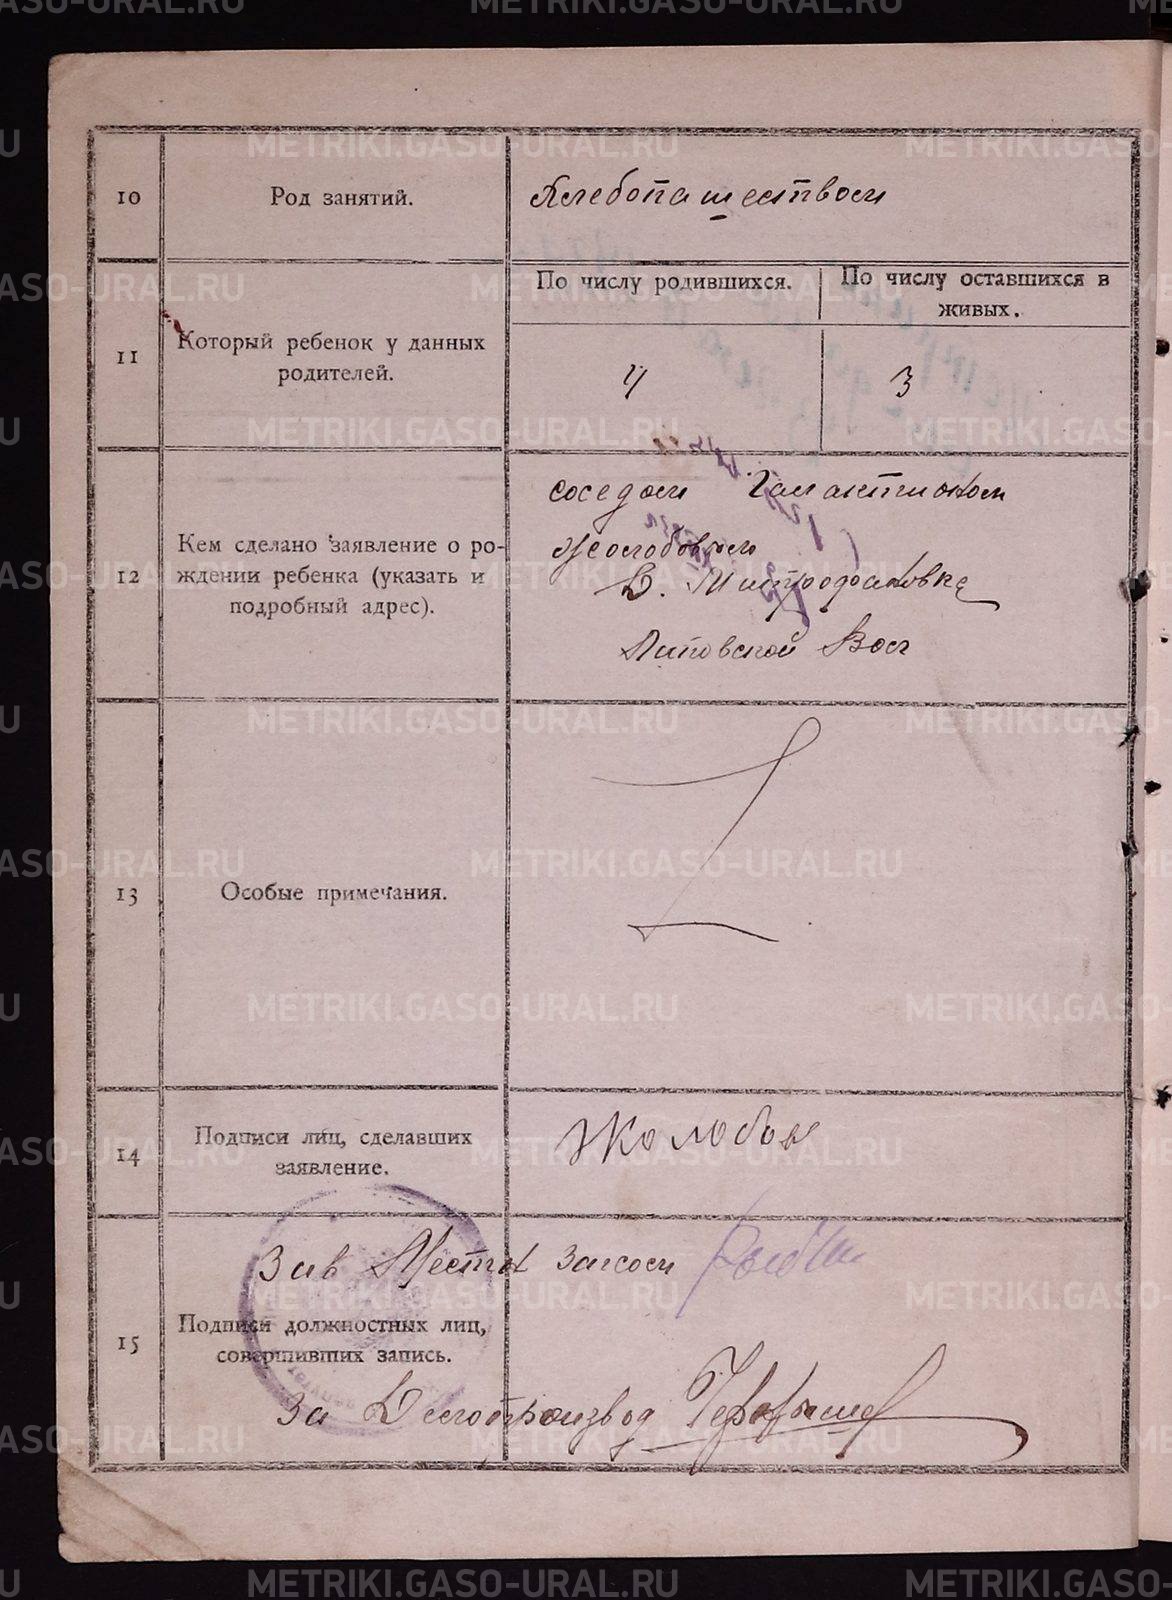 10
Род занятий.
Хлебопашеством
По числу родившихся.
По числу оставшихся в
живых.
11
Который ребенок у данных
родителей.
4
3
12
Кем сделано заявление о ро-
ждении ребенка (указать и
подробный адрес).
соседом Галактионом
Жолобовым
Д. Митрофановка
Липовской Вол
13
Особые примечания.
14
Подписи лиц, сделавших
заявление.
Жолобов
Зав Местн Загсом
15
Подписи должностных лиц,
совершивших запись.
За Делопроизвод
METRIKI.GASO-URAL.RU